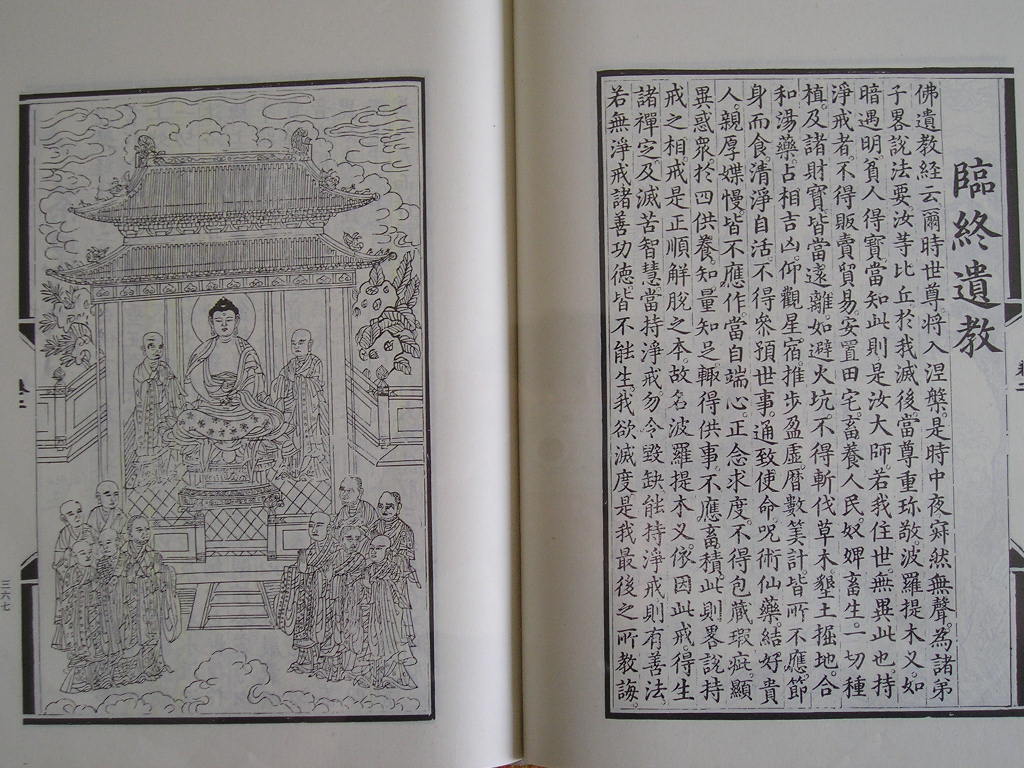 臨終遺教
佛遺教経云爾時世尊将入涅槃是時中夜寂然無聲為諸弟
子畧説法要汝等比丘於我滅後當尊重珎敬波羅提木叉如
暗遇明貧人得寳當知此則是汝大師若我住世無異此也持
淨戒者不得販賣貿易安置田宅畜養人民奴婢畜生一切種
植及諸財寳皆當逺離如避火坑不得斬伐草木墾土掘地合
和湯藥占相吉凶仰觀星宿推步盈虛曆數筭計皆所不應節
身而食清淨自活不得叅預世事通致使命呪術仙藥結好貴
人親厚媟慢皆不應作當自端心正念求度不得包蔵瑕疵顯
異惑衆於四供養知量知足輙得供事不應畜積此則畧説持
戒之相戒是正順解脫之本故名波羅提木叉依因此戒得生
諸禪定及滅苦智慧當持淨戒勿令毀缺能持淨戒則有善法
若無淨戒諸善功德皆不能生我欲滅度是我最後之所教誨
三六七